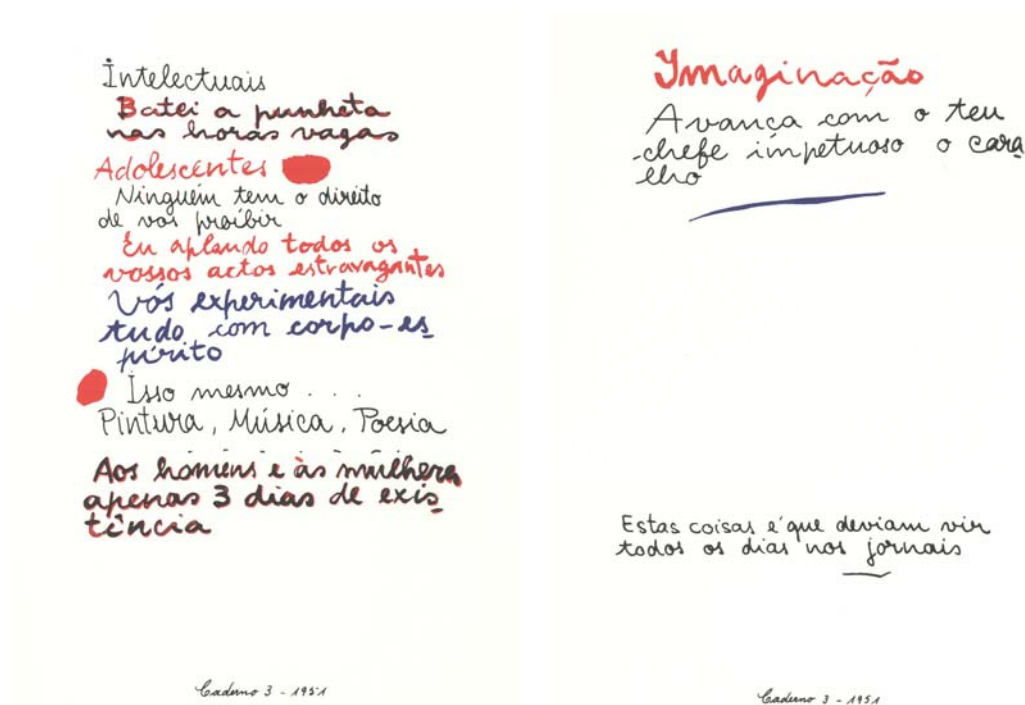 Intelectuais
Batei a punheta
nas horas vagas
Adolescentes
Ninguém tem o direito
de vos proibir
Eu aplaudo todos os
vossos actos estravagantes
Vós experimentais
tudo com corpo-es
pírito
Isso mesmo . . .
Pintura, Música, Poesia
Aos homens e às mulheres
apenas 3 dias de exis
tência
Caderno 3 - 1951
Imaginação
Avança com o teu
chefe impetuoso o cara
lho
Estas coisas é que deviam vir
todos os dias nos jornais
Caderno 3 - 1951